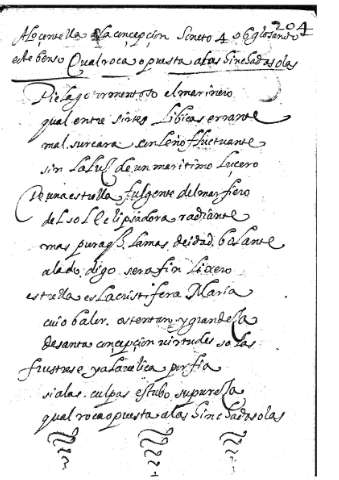 204
A lo çentella de la conçepçion Soneto 4 obglosando
este berso Qual roca opuesta a las hinchadas olas
Pielago tormentoso el marinero
qual entre sirtes Libicas errante
mal surcara en leño fluctuante
sin la luz de un maritimo luçero
O una estrella fulgente del mar fiero
del sol eclipsadora radiante
mas pura que llamas deidad bolante
alado, digo serafin lixero
estrella es la cristifera Maria
cuio baler. ostentan. y grandeza
de santa conçepçion virtudes solas
frustrase ya la belica porfia
si a las. culpas estubo. su pureza
qual roca opuesta a las hinchadas olas